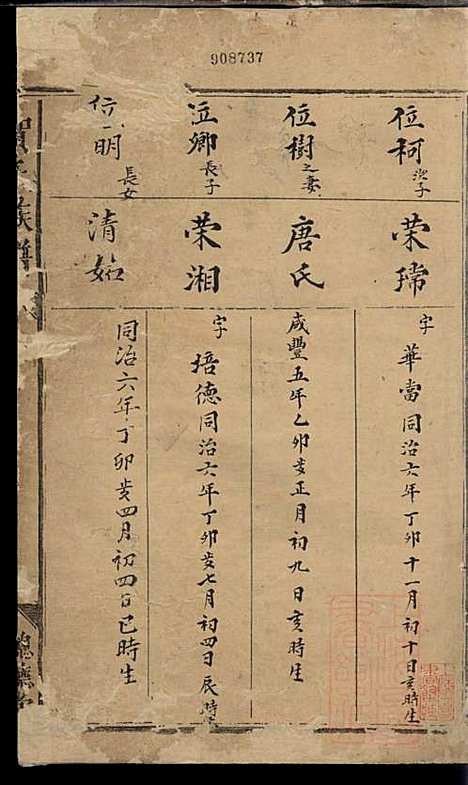 908737
位柯次子
荣瑞
字華當同治六年丁卯十一月初十日亥時生
位樹之妻
唐氏
咸豐五年乙卯歲正月初九日亥時生
位卿長子
荣湘
字培德同治六年丁卯歲七月初四日辰時生
位明長女
清姑
同治六年丁卯歲四月初四日巳時生
賀氏族譜